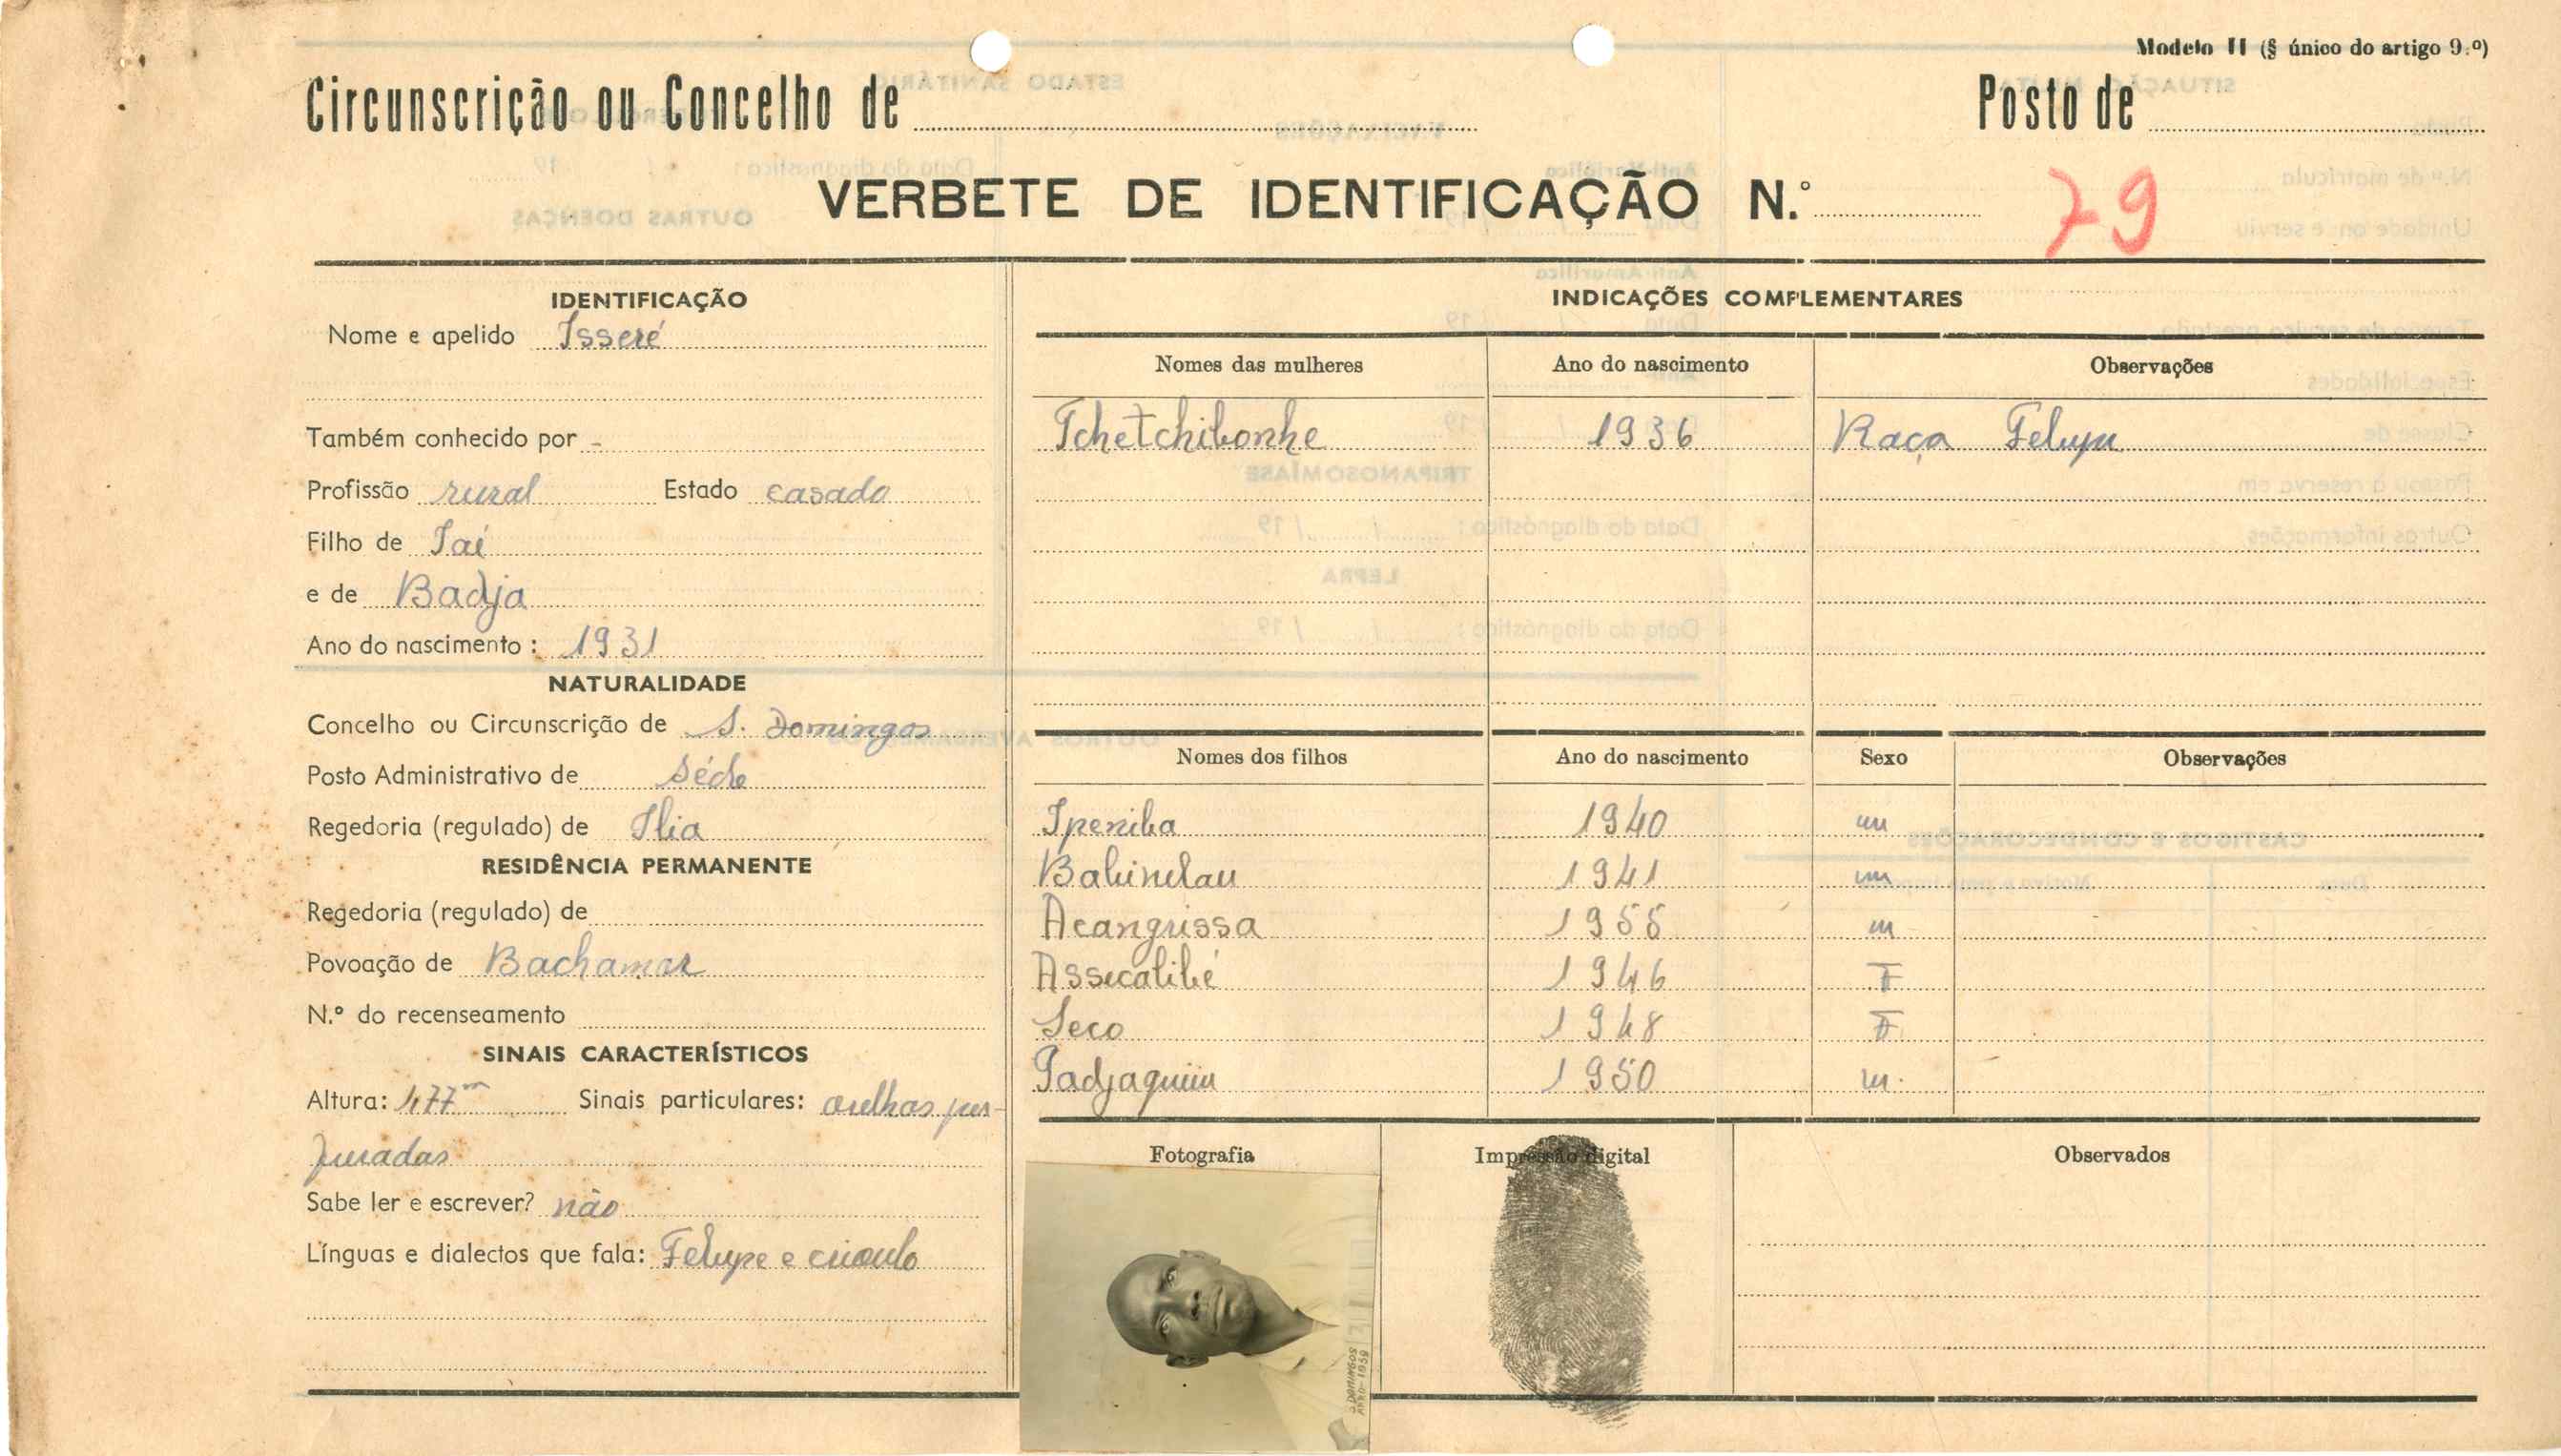 Modelo II (§ único do artigo 9.º)
Circunscrição ou Concelho de Posto de
VERBETE DE IDENTIFICAÇÃO N.º 79
IDENTIFICAÇÃO
Nome e apelido Isseré
Também conhecido por -
Profissão rural Estado casado
Filho de Iai
e de Badja
Ano do nascimento : 1931
NATURALIDADE
Concelho ou Circunscrição de S. Domingos
Posto Administrativo de Séde
Regedoria (regulado) de Ilia
RESIDÊNCIA PERMANENTE
Regedoria (regulado) de
Povoação de Bachamar
N.º do recenseamento
SINAIS CARACTERÍSTICOS
Altura: 1,77m Sinais particulares: orelhas per-
furadas
Sabe ler e escrever? não
Línguas e dialectos que fala: Felupe e crioulo
INDICAÇÕES COMPLEMENTARES
Nomes das mulheres Ano do nascimento Observações
Tchetchibonhe 1936 Raça Felupe
Nomes dos filhos Ano do nascimento Sexo Observações
Ipeniba 1940 m
1941 m
Acangrissa 1955 m
Assecalibé 1946 F
Seco 1948 F
Padjaquim 1950 m.
Fotografia Impressão digital Observados
S DOMINGOS
ANRO-1959